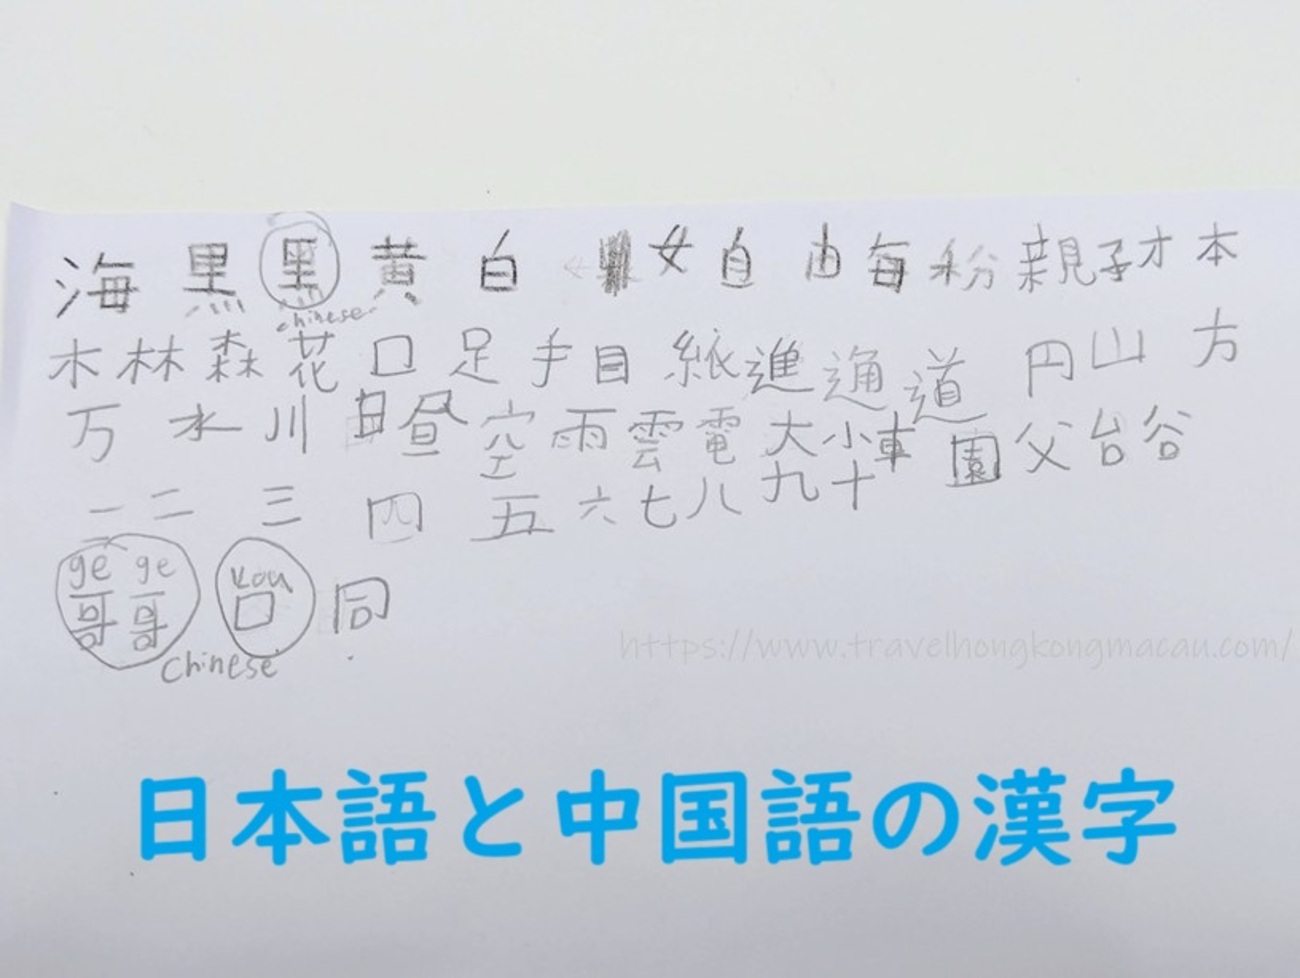 海 黒 黑 黄 白 女 自 由 毎 粉 親 子 才 本
chinese
木 林 森 花 口 足 手 目 紙 進 通 道 円 山 方
万 水 川 日 昼 空 雨 雲 電 大 小 車 園 父 台 谷
一 二 三 四 五 六 七 八 九 十
gē ge kou
哥 哥 口 同
Chinese
https://www.travelhongkongmacau.com/
日本語と中国語の漢字